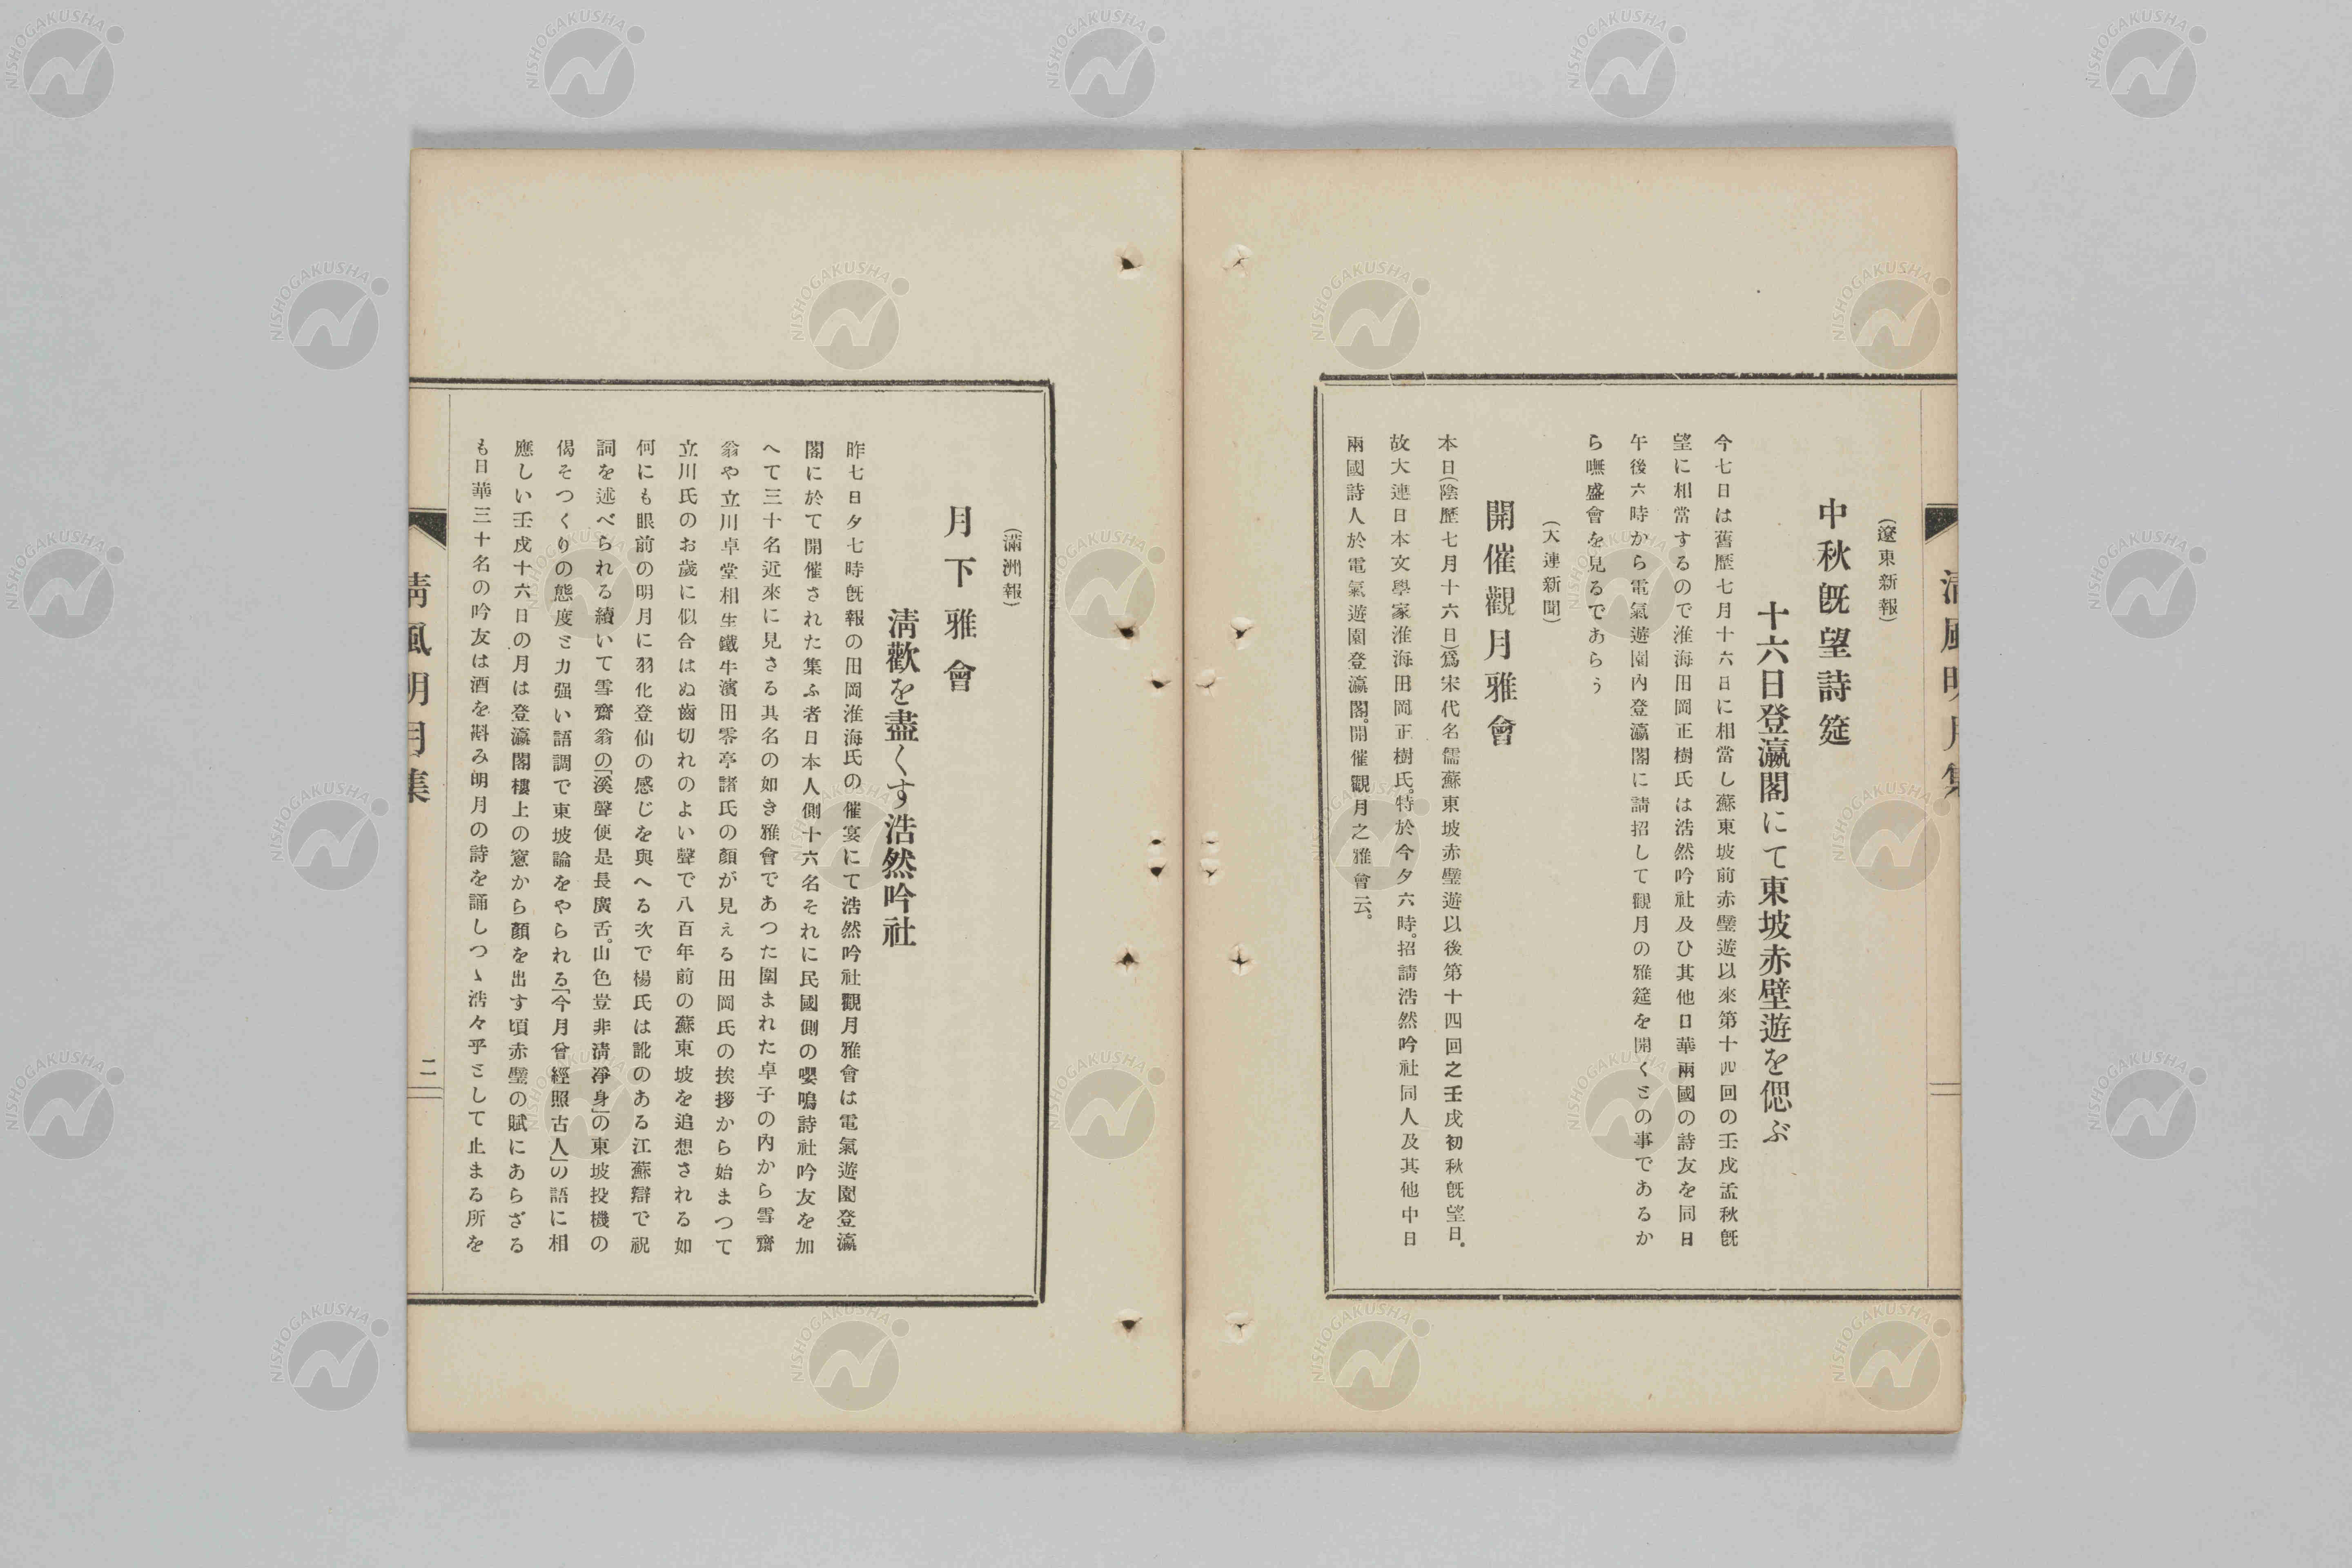 清風明月集
(遼東新報)
中秋既望詩筵
十六日登瀛閣にて東坡赤壁遊を偲ぶ
今七日は舊歷七月十六日に相當し蘇東坡前赤壁遊以來第十四回の壬戌孟秋既
望に相當するので淮海田岡正樹氏は浩然吟社及ひ其他日華兩國の詩友を同日
午後六時から電氣遊園內登瀛閣に請招して觀月の雅筵を開くとの事であるか
ら嘸盛會を見るであらう
(大連新聞)
開催觀月雅會
本日(陰歷七月十六日)爲宋代名儒蘇東坡赤壁遊以後第十四回之壬戌初秋既望日。
故大連日本文學家淮海田岡正樹氏。特於今夕六時。招請浩然吟社同人及其他中日
兩國詩人於電氣遊園登瀛閣。開催觀月之雅會云。
(滿洲報)
月下雅會
淸歡を盡くす浩然吟社
昨七日夕七時旣報の田岡淮海氏の催宴にて浩然吟社觀月雅會は電氣遊園登瀛
閣に於て開催された集ふ者日本人側十六名それに民國側の嚶鳴詩社吟友を加
へて三十名近來に見さる其名の如き雅會であつた圍まれた卓子の內から雪齋
翁や立川卓堂相生鐵牛濱田零亭諸氏の顏が見える田岡氏の挨拶から始まつて
立川氏のお歲に似合はぬ齒切れのよい聲で八百年前の蘇東坡を追想される如
何にも眼前の明月に羽化登仙の感じを與へる次で楊氏は訛のある江蘇辯で祝
詞を述べられる續いて雪齋翁の「溪聲便是長廣舌。山色豈非淸淨身」の東坡投機の
偈そつくりの態度と力强い語調で東坡論をやられる「今月曾經照古人」の語に相
應しい壬戌十六日の月は登瀛閣樓上の窓から顏を出す頃赤壁の賦にあらざる
も日華三十名の吟友は酒を斟み明月の詩を誦しつゝ浩々乎として止まる所を
淸風明月集
二
NISHOGAKUSHA